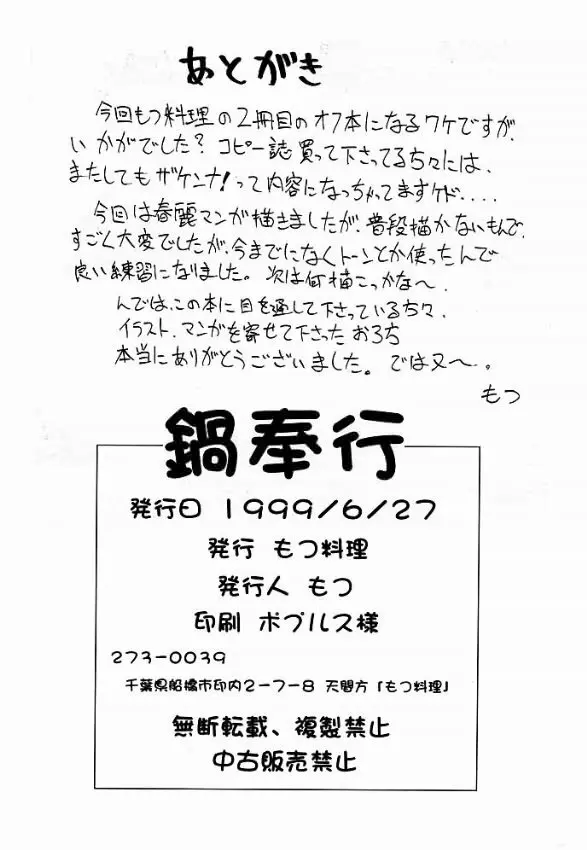 あとがき
今回もつ料理の2冊目のオフ本になるワケですが、
いかがでした？ コピー誌買って下さってる方々には、
またしてもザケンナ！って内容になっちゃってますケド....
今回は春麗マンガ描きましたが、普段描かないもんで、
すごく大変でしたが、今までになくトーンとか使ったんで
良い練習になりました。次は何描こっかな〜。
んでは、この本に目を通して下さっている方々、
イラスト、マンガを寄せて下さったおろち
本当にありがとうございました。では又〜。
もつ
鍋奉行
発行日 1999/6/27
発行 もつ料理
発行人 もつ
印刷 ポプルス様
273-0039
千葉県船橋市印内2-7-8 天間方「もつ料理」
無断転載、複製禁止
中古販売禁止